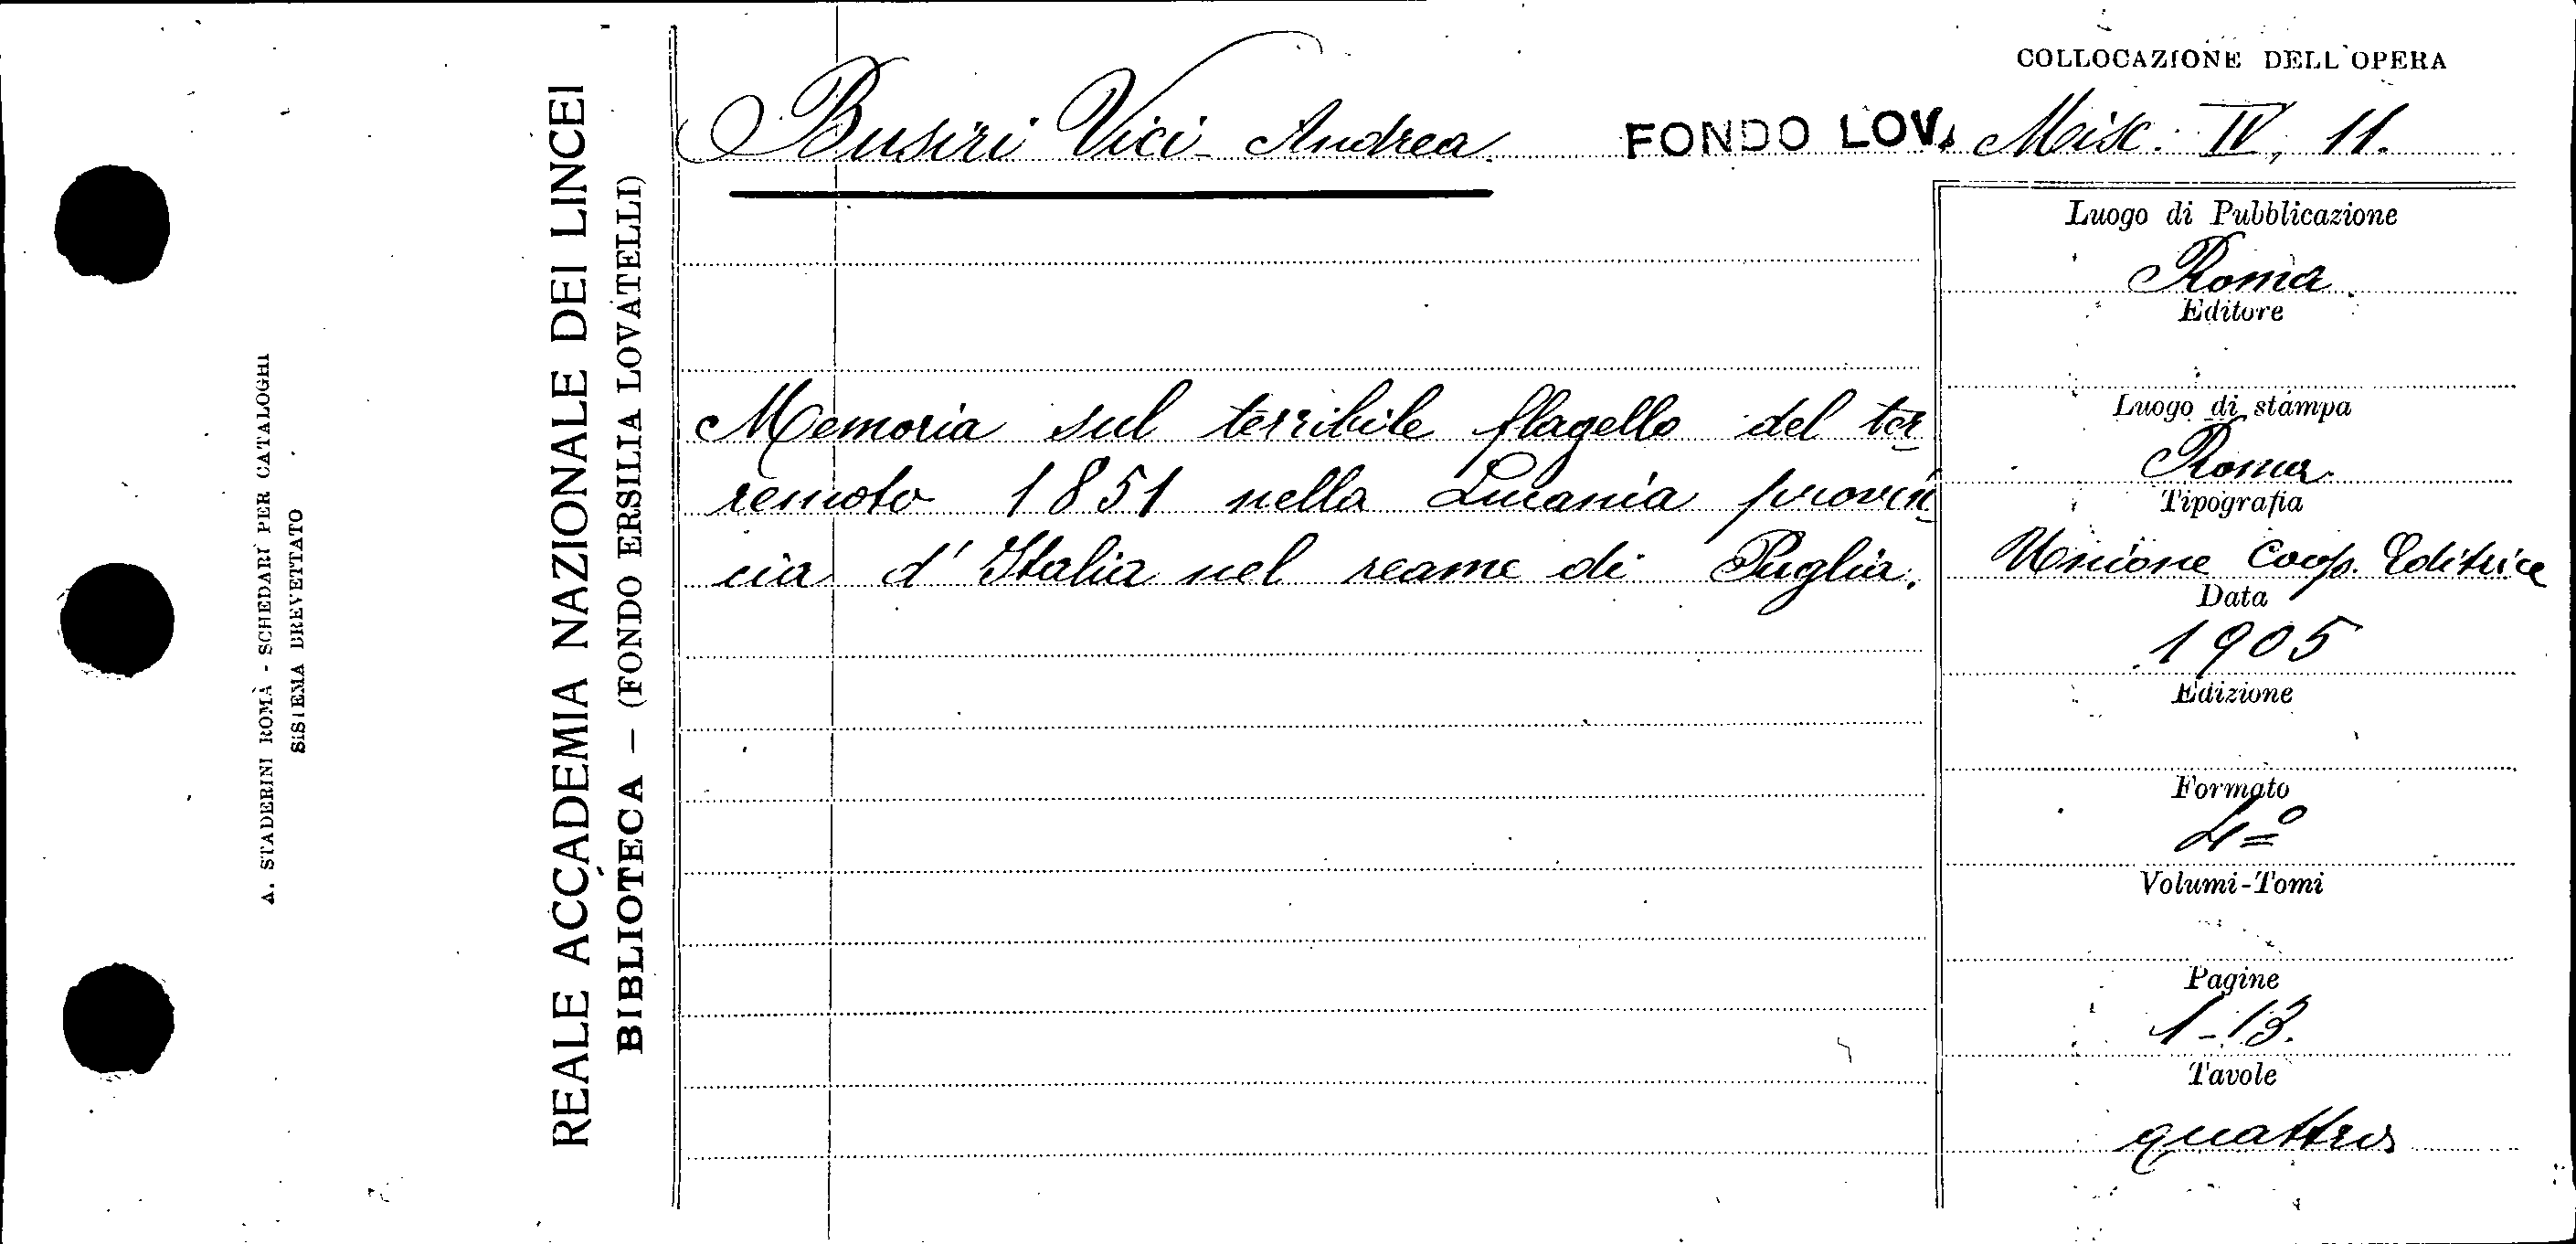 A. STADERINI ROMA - SCHEDARI PER CATALOGHI
SISTEMA BREVETTATO
REALE ACCADEMIA NAZIONALE DEI LINCEI
BIBLIOTECA — (FONDO ERSILIA LOVATELLI)
COLLOCAZIONE DELL'OPERA
Busiri Vici Andrea. FONDO LOV. Misc. IV, 11.
Memoria sul terribile flagello del ter-
remoto 1851 nella Lucania provin-
cia d'Italia nel reame di Puglia.
Luogo di Pubblicazione
Roma.
Editore
Luogo di stampa
Roma.
Tipografia
Unione Coop. Editrice
Data
1905
Edizione
Formato
4º
Volumi-Tomi
Pagine
1-13.
Tavole
quattro